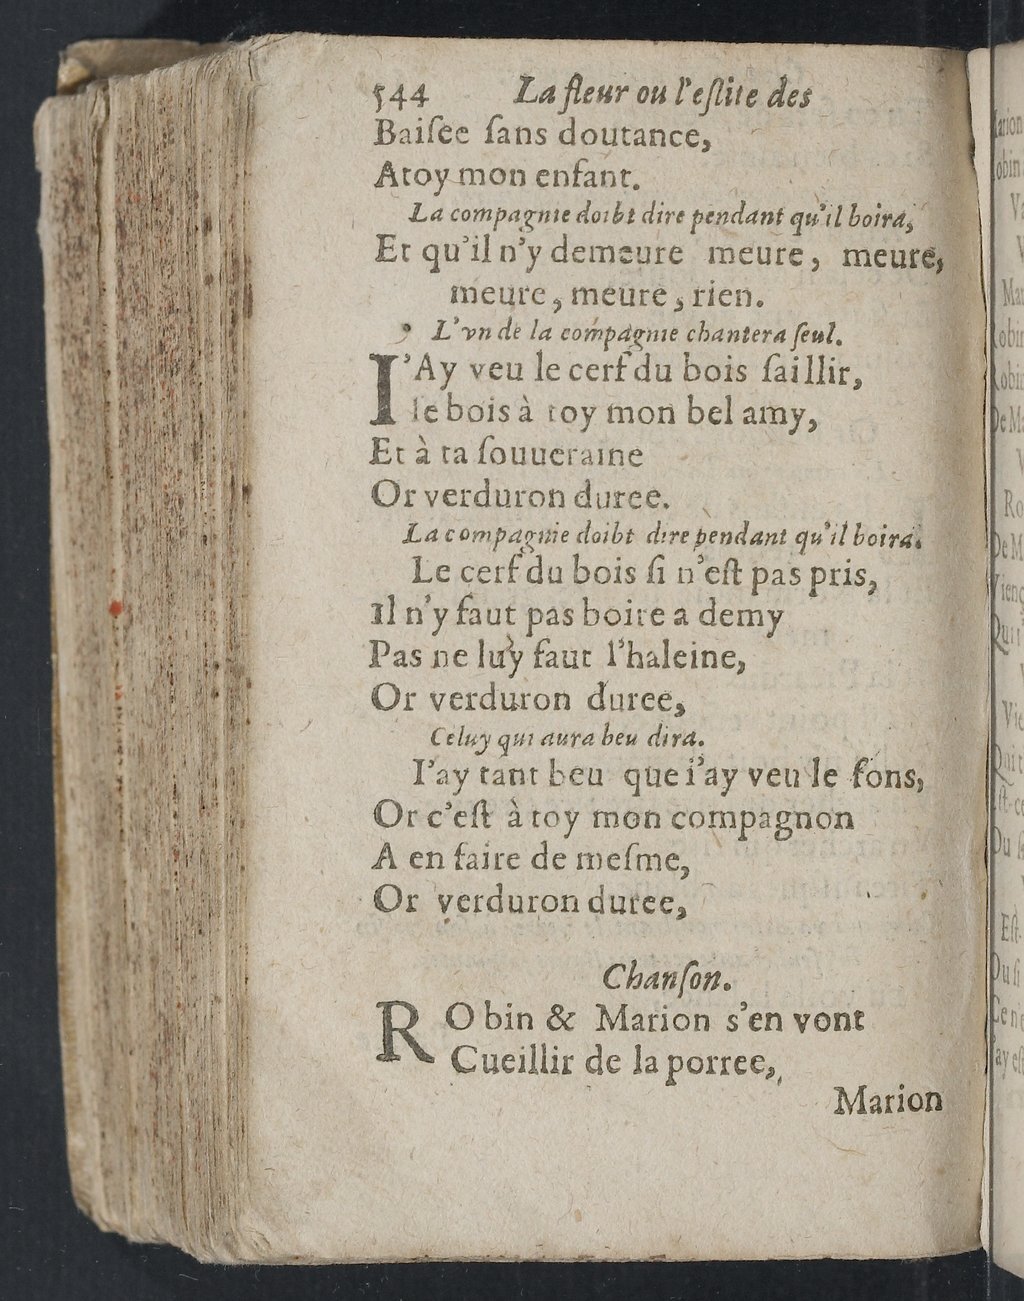 544 La fleur ou l'eſlite des
Baiſee ſans doutance,
Atoy mon enfant.
La compagnie doibt dire pendant qu'il boira,
Et qu'il n'y demeure meure, meure,
meure, meure, rien.
L'vn de la compagnie chantera ſeul.
I'Ay veu le cerf du bois ſaillir,
Ie bois à toy mon bel amy,
Et à ta ſouueraine
Or verduron duree.
La compagnie doibt dire pendant qu'il boira.
Le cerf du bois ſi n'eſt pas pris,
Il n'y faut pas boire a demy
Pas ne luy faut l'haleine,
Or verduron duree,
Celuy qui aura beu dira.
I'ay tant beu que i'ay veu le fons,
Or c'eſt à toy mon compagnon
A en faire de meſme,
Or verduron duree,
Chanſon.
RObin & Marion s'en vont
Cueillir de la porree,
Marion